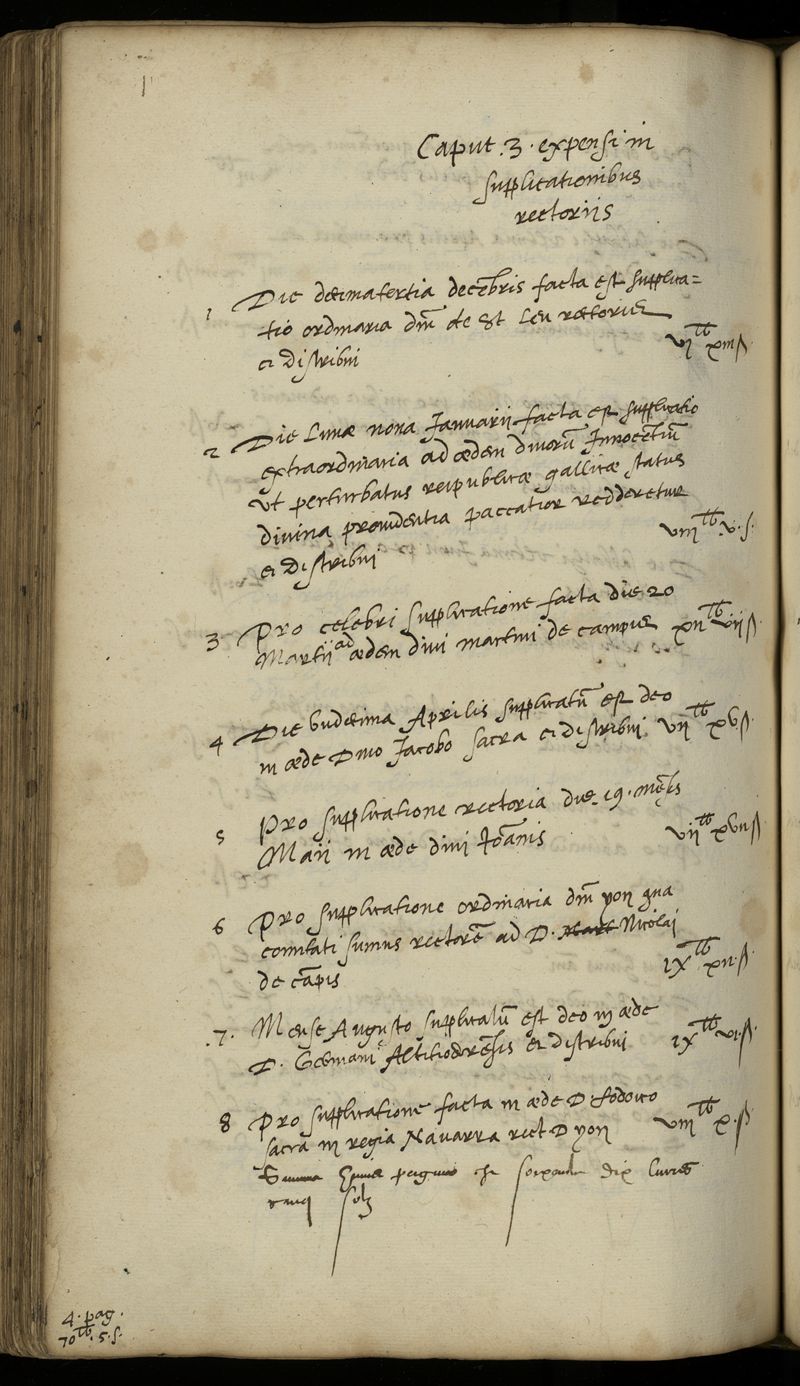 Caput .3. expensi in
supplicationibus
rectoriis
1 Die decimatertia decēbris facta est supplica=
tio ordinaria dm̄ de St Leu rectoris
ei distribui vj lb xiij ß
2 Die Lunæ nona Januarii facta est supplicatio
extraordinaria ad ædem divorū Innocētiū
ut perturbatus reipublicæ gallicæ status
divina providentia paccatior redderetur
ei distribui viij lb .v. s.
3 Pro celebri supplicatione facta die 20
Martii ad ædem divi martini de campis xij lb vij ß
4 Die undecima Aprilis supplicatū est deo
in æde Divo Jacobo sacra ei distribui vij lb xv ß
5 Pro supplicatione rectoria die 19. mēsis
Maii in æde divi Joānis vij lb xvij ß
6 Pro supplicatione ordinaria dm̄ yon qua
comitati sumus rectorē ad D. Nicolai
de cāpis ix lb xij. ß
.7. Mense Augusto supplicatū est deo in æde
D. Germani Altissiodorēsis ei distribui ix lb vj. ß.
8 Pro supplicatione facta in æde D Lodovico
sacra in regia Navarra rect D yon viij lb x. ß
Summa soixante dix livres
cinq solz
4. pag.
70 lb. 5. s.